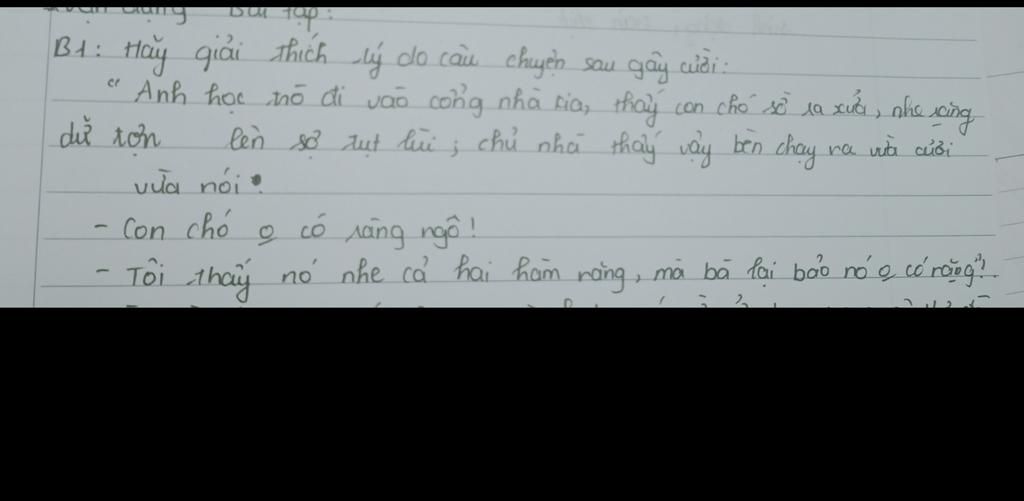 Bài tập:
B1: Hãy giải thích lý do câu chuyện sau gây cười:
“ Anh học trò đi vào cổng nhà kia, thấy con chó sồ ra xủa, nhe răng
dữ tợn lền sợ rụt lùi ; chủ nhà thấy vậy bèn chạy ra vừa cười
vừa nói:
- Con chó o có răng ngô!
- Tôi thấy nó nhe cả hai hàm răng, mà bà lại bảo nó o có răng?!